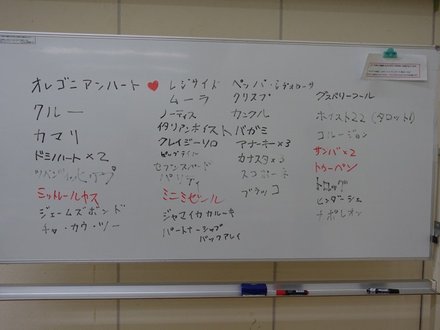 オレゴニアンハート
クルー
カマリ
ドミノハート×2
ミットレールガス
ジェームズボンド
チャ・カウ・ツー
レジサイド
ムーラ
ノーティス
イタリアンホイスト
クレイジーソロ
ビッグテイル
セブンスバード
パリティ
ミニミゼール
ジャマイカカルーキ
パートナーシップ
バックアレイ
クリスプ
カックル
バガミ
アナーキー×3
カナスタ×3
スコポーネ
ブラッコ
グスベリーフール
ホイスト22(タロット!)
コルージョン
サンバ×2
トゥーペン
トロッグ
ヒンダーシェ
ナポレオン